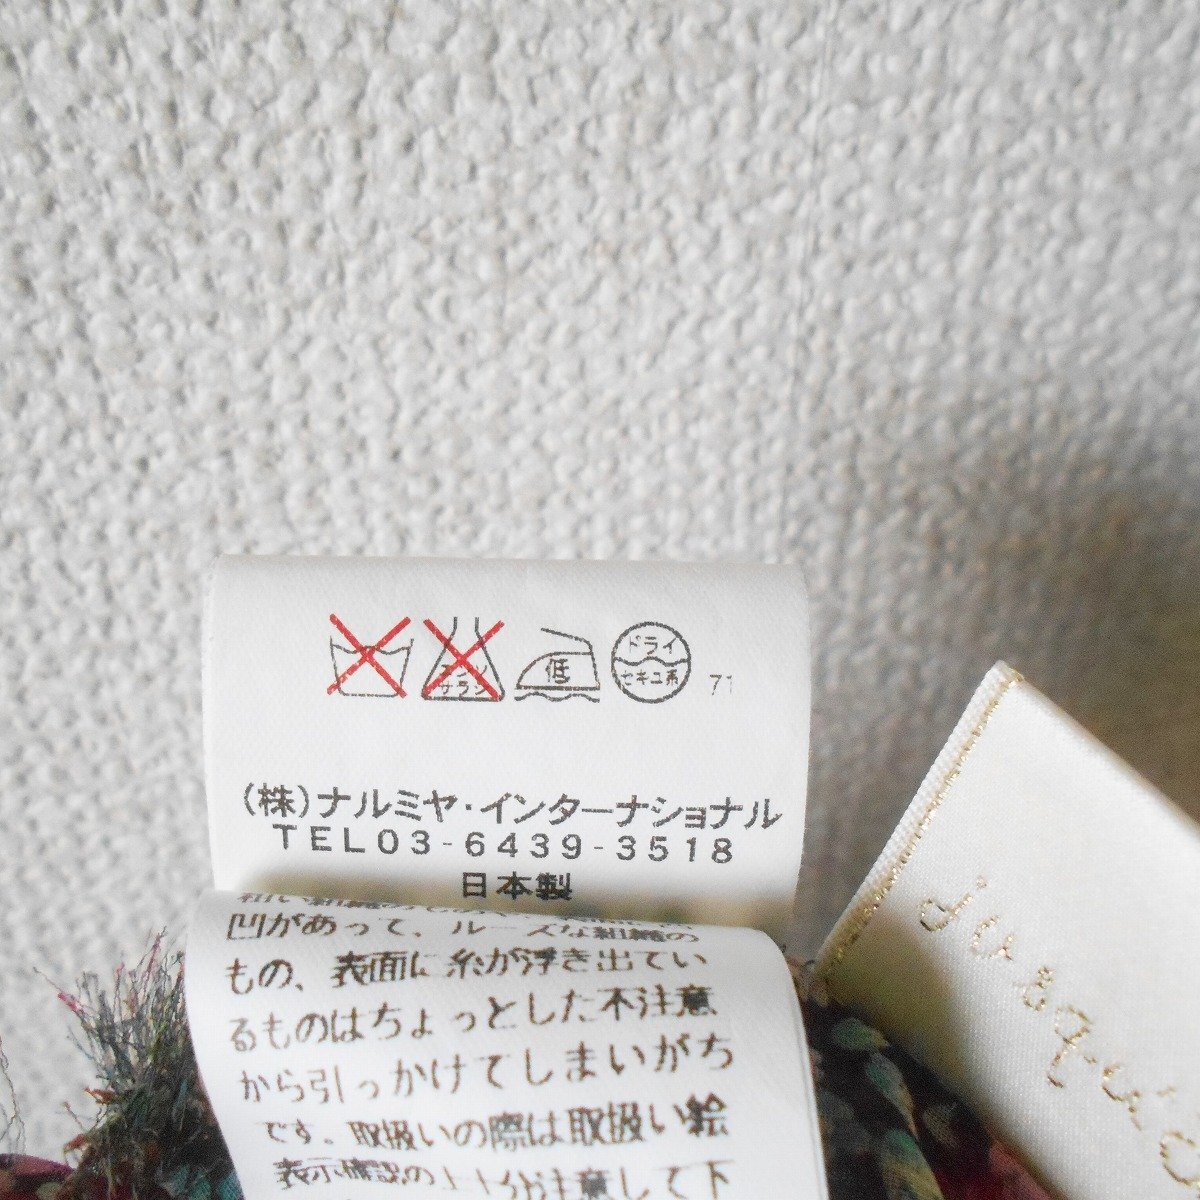 低
ドライ
セキユ系
71
(株)ナルミヤ・インターナショナル
TEL03-6439-3518
日本製
凹があって、ルーズな組織の
もの、表面に糸が浮き出てい
るものはちょっとした不注意
から引っかけてしまいがち
です。取扱いの際は取扱い絵
表示確認の上十分注意して下
jusqu'à